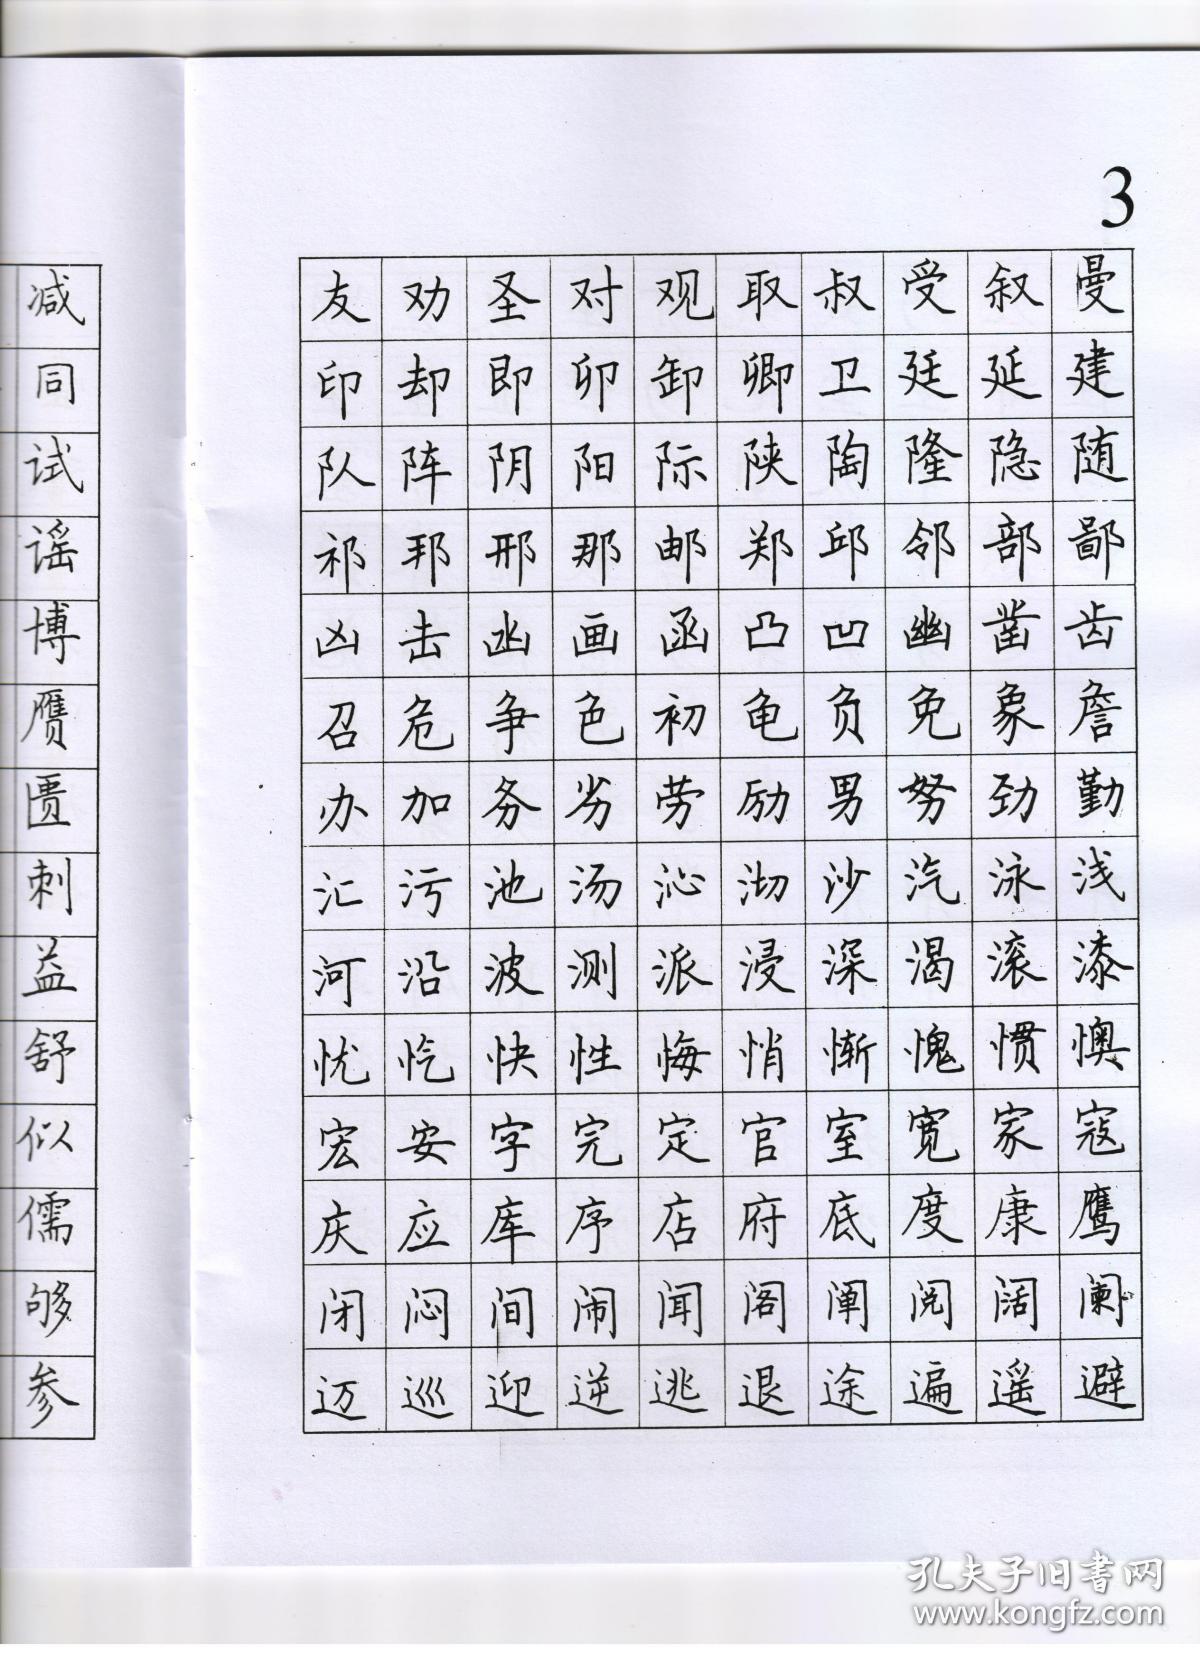 3
减
同
试
谣
博
赝
匮
刺
益
舒
似
儒
够
参
友劝圣对观取叔受叙曼
印却即卯卸卿卫廷延建
队阵阴阳际陕陶隆隐随
祁邦邢那邮郑邱邻部鄙
凶击凼画函凸凹幽凿齿
召危争色初龟负免象詹
办加务劣劳励男努劲勤
汇污池汤沁沏沙汽泳浅
河沿波测派浸深渴滚漆
忧忾快性悔悄惭愧惯懊
宏安字完定官室宽家寇
庆应库序店府底度康鹰
闭闷间闹闻阁阐阅阔阑
迈巡迎逆逃退途遍遥避
孔夫子旧书网
www.kongfz.com